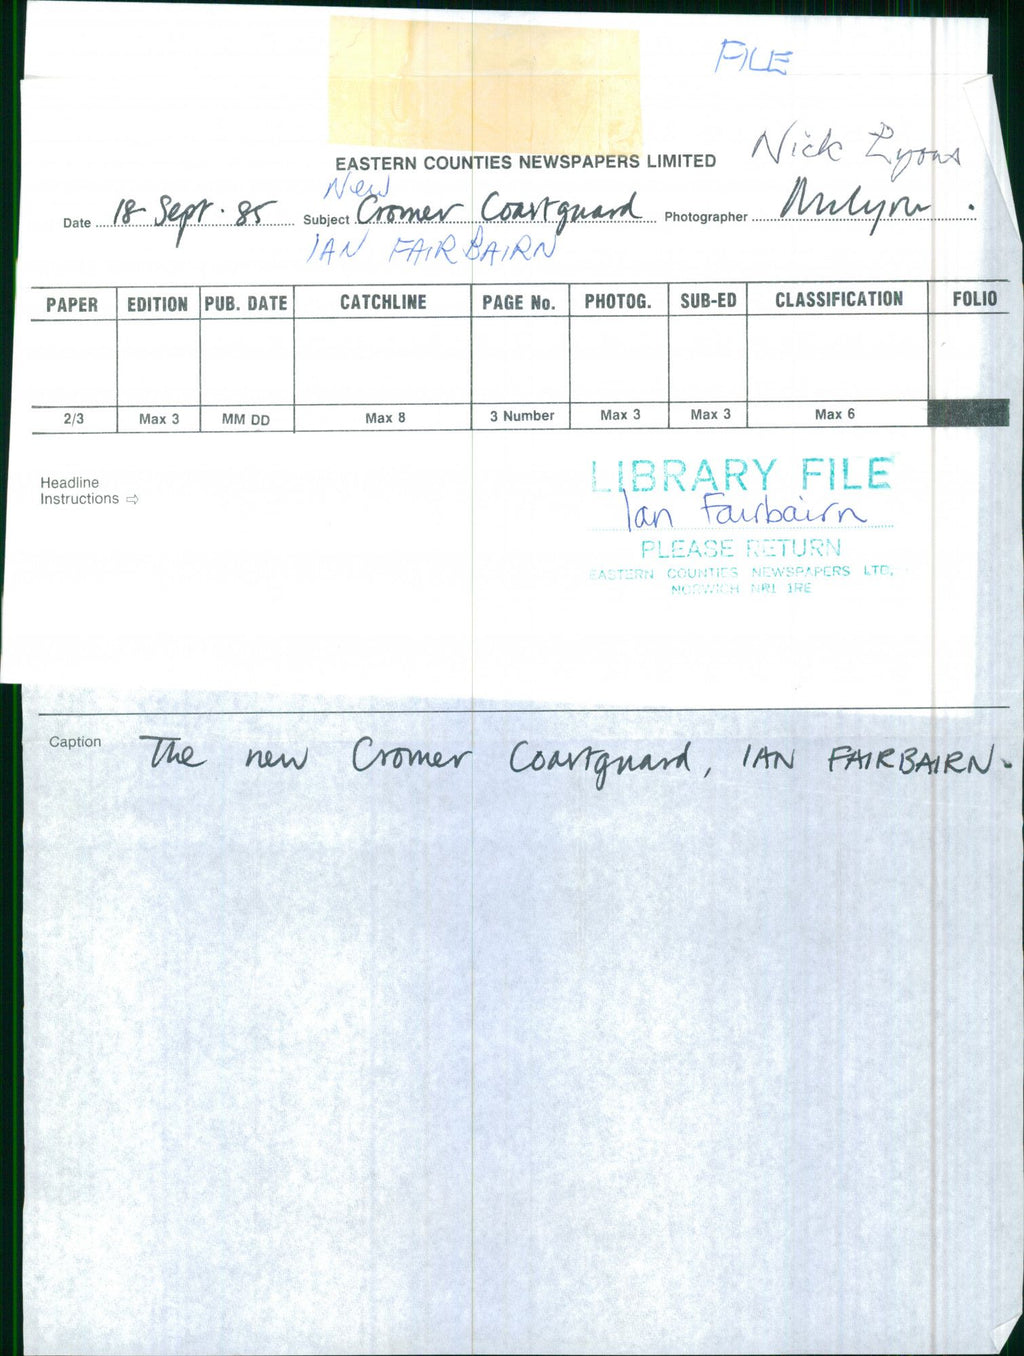 FILE
EASTERN COUNTIES NEWSPAPERS LIMITED Nick Lyons
New
Date 18 Sept. 85 Subject Cromer Coastguard Photographer
IAN FAIRBAIRN
PAPER EDITION PUB. DATE CATCHLINE PAGE No. PHOTOG. SUB-ED CLASSIFICATION FOLIO
2/3 Max 3 MM DD Max 8 3 Number Max 3 Max 3 Max 6
Headline
Instructions ⇨
LIBRARY FILE
Ian Fairbairn
PLEASE RETURN
EASTERN COUNTIES NEWSPAPERS LTD,
NORWICH NR1 1RE
Caption The new Cromer Coastguard, IAN FAIRBAIRN.